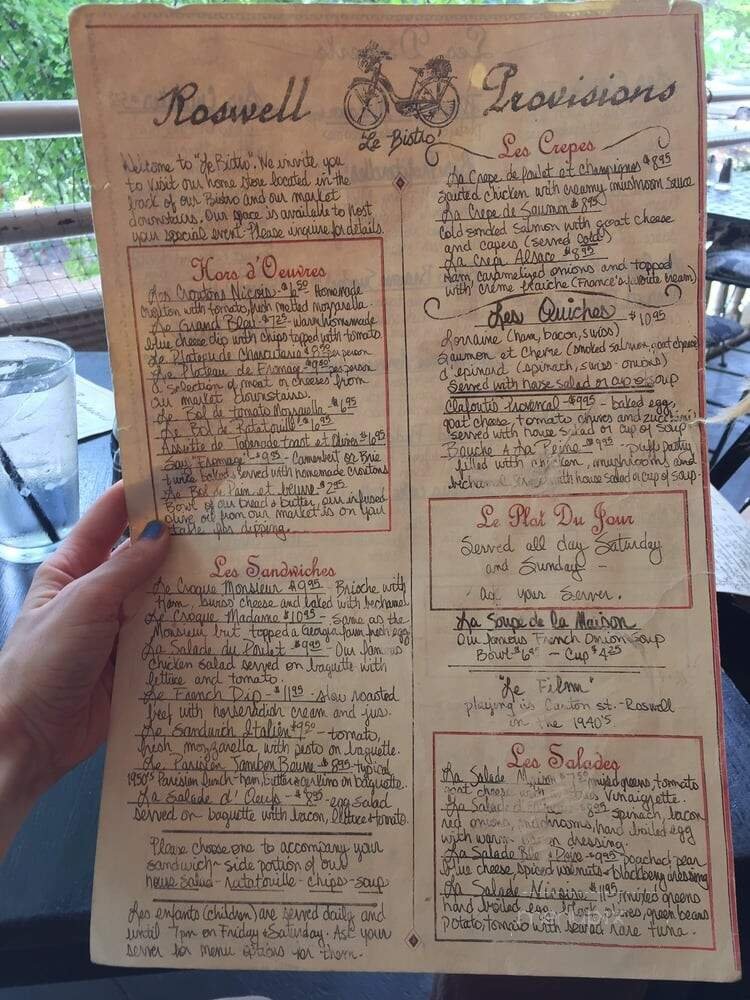 Roswell Provisions
Le Bistro
Welcome to "Le Bistro". We invite you
to visit our home store located in the
back of our Bistro and our market
downstairs. Our space is available to host
your special event. Please inquire for details.
Hors d'Oeuvres
Les Croutons Nicois - $6.50 Homemade
crouton with tomato, fresh melted mozzarella.
Le Grand Bleu - $7.25 - warm homemade
blue cheese dip with chips topped with tomato.
Le Plateau de Charcuterie $9.50 per person
Le Plateau de Fromage - $9.50 per person
a selection of meat or cheeses from
our market downstairs.
Le Bol de tomato Mozzarella - $6.95
Le Bol de Ratatouille - $6.95
Assiette de Tapenade toast et Olives $6.95
Fromage - $9.95 - Camembert or Brie
baked & served with homemade croutons
Le Bol de Pain et beurre - $2.95
Bowl of our bread & butter, our infused
olive oil from our market is on you
table for dipping.
Les Sandwiches
Le Croque Monsieur $9.95 - Brioche with
Ham, swiss cheese and baked with bechamel
Le Croque Madame $10.95 - same as the
Monsieur but topped a Georgia farm fresh egg
La Salade du Poulet - $9.95 - Our famous
chicken salad served on baguette with
lettice and tomato.
Le French Dip - $11.95 - slow roasted
beef with horseradish cream and jus.
Le Sandwich Italien $9.50 - tomato,
fresh mozzarella with pesto on baguette.
Le Parisien Jambon Beurre - $8.95 - typical
1950's Parisian lunch - ham, butter & on baguette.
La Salade d'Oeufs - $8.95 - egg salad
served on baguette with bacon, lettuce & tomato.
Please choose one to accompany your
sandwich ~ side portion of our
house salad - ratatouille - chips - soup
Les enfants (children) are served daily and
until 7pm on Friday & Saturday. Ask your
server for menu options for them.
Les Crepes
La Crepe de Poulet et Champignes $8.95
sauted chicken with creamy mushroom sauce
La Crepe de Saumon $8.95
Cold smoked salmon with goat cheese
and capers (served cold)
La Crepe Alsace $8.95
Ham, caramelized onions and topped
with crème fraiche (France's favorite cream)
Les Quiches $10.95
Lorraine (ham, bacon, swiss)
Saumon et Chevre (smoked salmon, goat cheese)
d'epinard (spinach, swiss - onions)
Served with house salad or cup of soup
Clafoutis Provencal - $9.95 - baked egg,
goat cheese, tomato, chives and zucchini
served with house salad or cup of soup
Bouche A La Reine - $9.95 - puff pastry
filled with chicken, mushrooms and
bechamel with house salad or cup of soup.
Le Plat Du Jour
Served all day Saturday
and Sunday -
ask your Server.
La Soupe de La Maison
Our famous French Onion Soup
Bowl - $6.95 - Cup $4.25
"Le Film"
playing is Canton st. - Roswell
in the 1940's
Les Salades
La Salade Maison $7.50 mixed greens, tomato
goat cheese with Vinaigrette.
La Salade $8.95 spinach, bacon
red onions, mushrooms, hard boiled egg
with warm dressing.
La Salade Bleu & Poire - $9.95 - poached pear
blue cheese, spiced walnuts - blackberry dressing
La Salade Nicoise $11.95 mixed greens
hard boiled egg, black olives, green beans
potato, tomato with seared rare tuna.
menupix